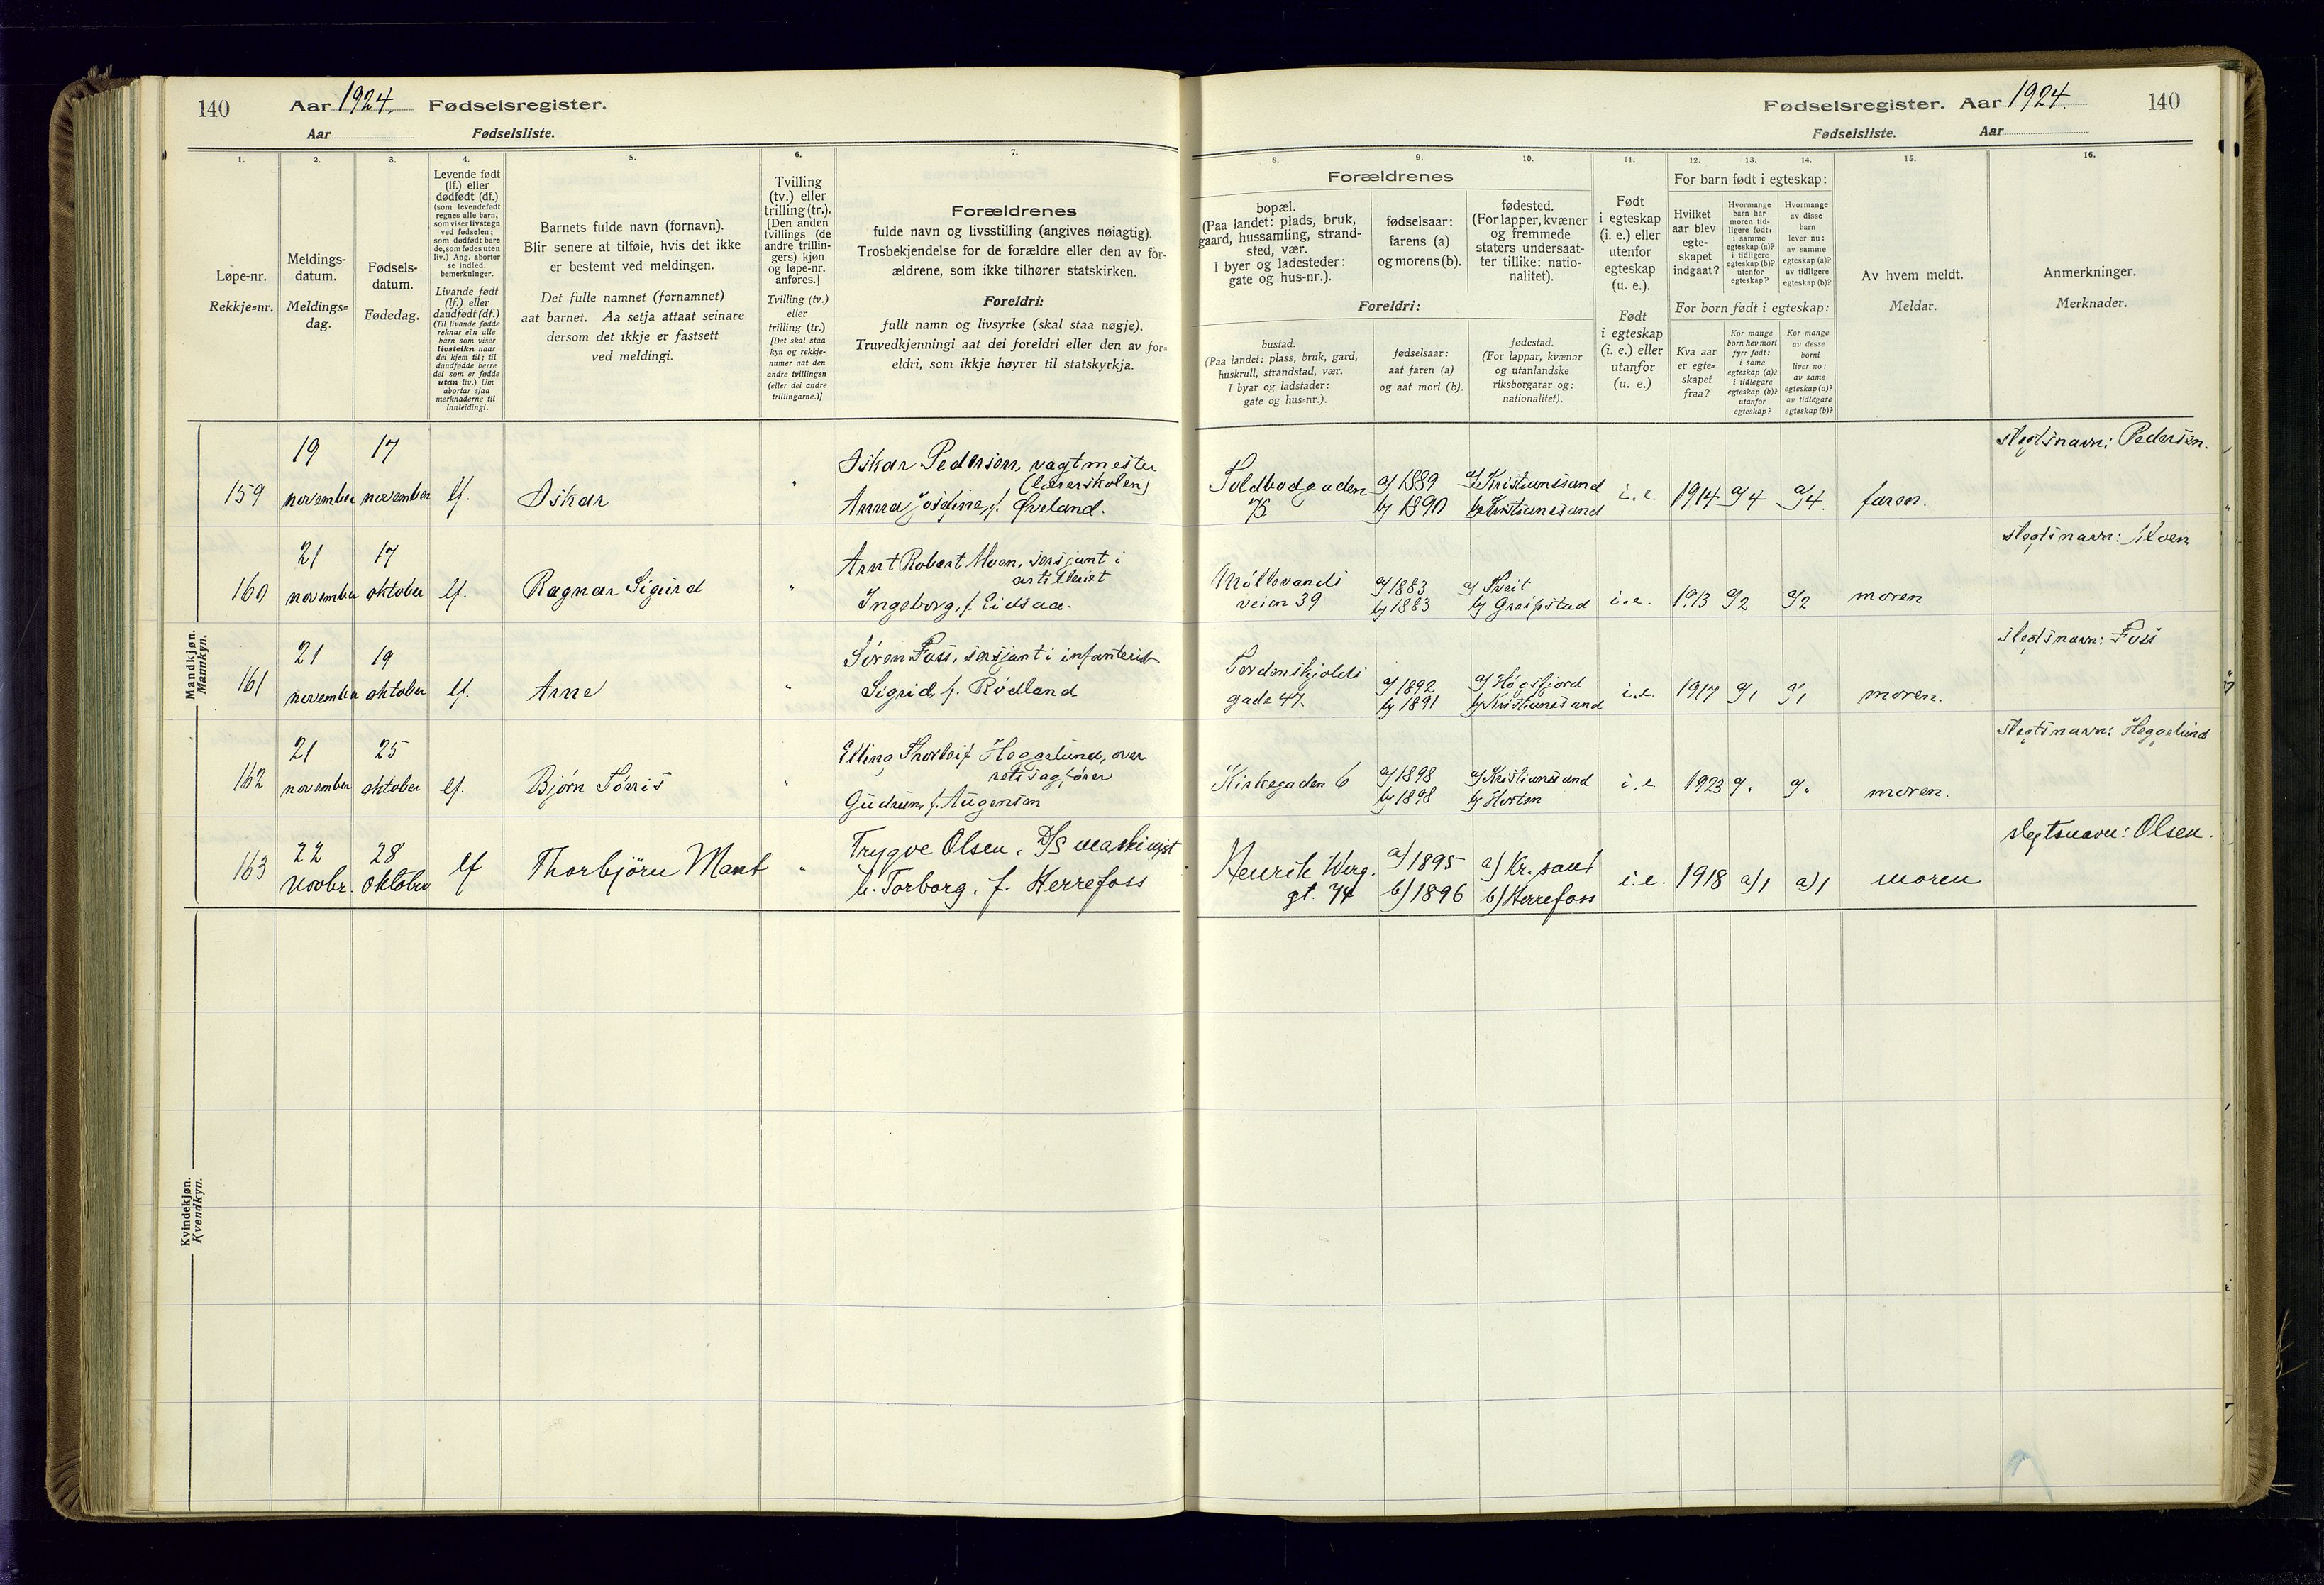 140
Aar 1924. Fødselsregister.
Aar Fødselsliste.
Fødselsregister. Aar 1924.
140
Fødselsliste. Aar
1.
2.
3.
4.
5.
6.
7.
8.
9.
10.
11.
12.
13.
14.
15.
16.
Løpe-nr.
Rekkje=nr.
Meldings-
datum.
Meldings=
dag.
Fødsels-
datum.
Fødedag.
Levende født
(lf.) eller
dødfødt (df.)
(som levendefødt
regnes alle barn,
som viser livstegn
ved fødselen;
som dødfødt bare
de, som fødes uten
liv.) Ang. aborter
se indled.
bemerkninger.
Livande født
(lf.) eller
daudfødt (df.)
(Til livande fødde
reknar ein alle
barn som viser
livsteikn naar
dei kjem til; til
daudfødde berre
dei som er fødde
utan liv.) Um
abortar sjaa
merknaderne til
innleidingi.
Barnets fulde navn (fornavn).
Blir senere at tilføie, hvis det ikke
er bestemt ved meldingen.
Det fulle namnet (fornamnet)
aat barnet. Aa setja attaat seinare
dersom det ikkje er fastsett
ved meldingi.
Tvilling
(tv.) eller
trilling (tr.).
[Den anden
tvillings (de
andre trillin-
gers) kjøn
og løpe-nr.
anføres.]
Tvilling (tv.)
eller
trilling (tr.)
[Det skal staa
kyn og rekkje-
numer aat den
andre tvillingen
(eller dei andre
trillingarne.)]
Forældrenes
fulde navn og livsstilling (angives nøiagtig).
Trosbekjendelse for de forældre eller den av for-
ældrene, som ikke tilhører statskirken.
Foreldri:
fullt namn og livsyrke (skal staa nøgje).
Truvedkjenningi aat dei foreldri eller den av for=
eldri, som ikkje høyrer til statskyrkja.
Forældrenes
bopæl.
(Paa landet: plads, bruk,
gaard, hussamling, strand-
sted, vær.
I byer og ladesteder:
gate og hus-nr.).
fødselsaar:
farens (a)
og morens (b).
fødested.
(For lapper, kvæner
og fremmede
staters undersaat-
ter tillike: natio-
nalitet).
Foreldri:
bustad.
(Paa landet: plass, bruk, gard,
huskrull, strandstad, vær.
I byar og ladstader:
gate og hus=nr.).
fødselsaar:
aat faren (a)
og aat mori (b).
fødestad.
(For lappar, kvænar
og utanlandske
riksborgarar og:
nationalitet).
Født
i egteskap
(i. e.) eller
utenfor
egteskap
(u. e.).
Født
i egteskap
(i. e.) eller
utanfor
(u. e.)
For barn født i egteskap:
Hvilket
aar blev
egte-
skapet
indgaat?
Hvormange
barn har
moren tid-
ligere født:
i samme
egteskap (a)?
i tidligere
egteskap (b)?
utenfor
egteskap?
Hvormange
av disse
barn
lever nu:
av samme
egteskap (a)?
av tidligere
egteskap (b)?
For born født i egteskap:
Kva aar
er egte=
skapet
fraa?
Kor mange
born hev mori
fyrr født:
i same
egteskap (a)?
i tidlegare
egteskap (b)?
utanfor
egteskap?
Kor mange
av desse
borni
liver no:
av same
egteskap (a)?
av tidlegare
egteskap (b)?
Av hvem meldt.
Meldar.
Anmerkninger.
Merknader.
Mandkjøn.
Mannkyn.
159 19 november 17 november lf. Oskar "
Oskar Pedersen, vagtmester
(lærerskolen)
Anna Josefine, f. Øveland.
Toldbodgaden
75
a) 1889
b) 1890
a) Kristianssand
b) Kristianssand
i. e. 1914 a/4 a/4. faren.
slegtsnavn: Pedersen.
160 21 november 17 oktober lf. Ragnar Sigurd "
Arnt Robert Moen, sersjant i
artilleriet
Ingeborg, f. Eidsaa.
Møllevands
veien 39
a) 1883
b) 1883
a) Tveit
b) Greipstad
i. e. 1913 a/2 a/2 moren
slegtsnavn: Moen
161 21 november 19 oktober lf. Arne "
Søren Foss, sersjant i infanteriet
Sigrid, f. Rødland
Tordenskjolds
gade 47.
a) 1892
b) 1891
a) Høgsfjord
b) Kristianssand
i. e. 1917 a/1 a/1 moren.
slegtsnavn: Foss
162 21 november 25 oktober lf. Bjørn Tørris "
Elling Thorleif Heggelund, over
retssagfører
Gudrun, f. Augensen
Kirkegaden 6
a) 1898
b) 1898
a) Kristianssand
b) Horten
i. e. 1923 a/" a/" moren.
slegtsnavn: Heggelund
163 22 novbr. 28 oktober lf Thorbjørn Mant "
Trygve Olsen, D/S maskinist
h. Torborg, f. Herrefoss
Henrik Werg.
gt. 74
a) 1895
b) 1896
a) Kr.sand
b) Herrefoss
i. e. 1918 a)1 a)1 moren
slegtsnavn: Olsen.
Kvindekjøn.
Kvendkyn.